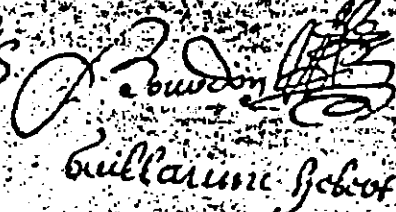 Bourdon
Guillaume hebert